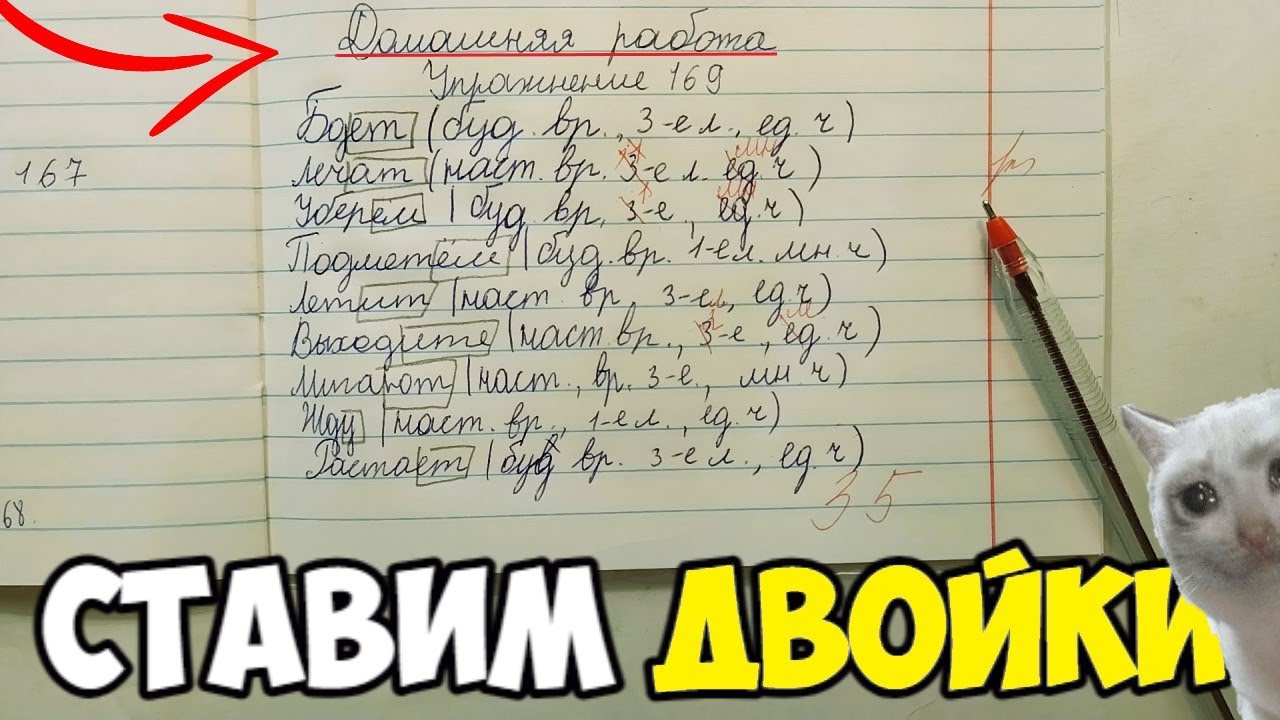 Домашняя работа
Упражнение 169
Бдет (буд. вр., 3-е л., ед. ч)
167
лечат (наст. вр. 3-е л. ед. ч) мн
Уберем (буд. вр, 3-е, ед. ч) мн
Подметём (буд. вр. 1-е л. мн. ч)
Летит (наст. вр, 3-е л, ед. ч)
Выходите (наст. вр., 3-е, ед. ч)
Мигают (наст., вр. 3-е., мн. ч)
Жду (наст. вр., 1-е л., ед. ч)
Растает (буд вр. 3-е л., ед. ч)
35
68.
СТАВИМ ДВОЙКИ